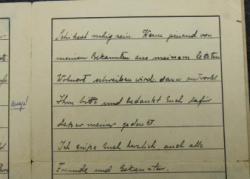 ruhig sein. Wenn jemand von
meinen Bekannten aus meinem letzten
Wohnort schreiben wird, dann antwortet
Ihm bitte und bedankt Euch dafür
dass er meiner gedenkt.
Ich grüße Euch herzlich auch alle
Freunde und Bekannten.